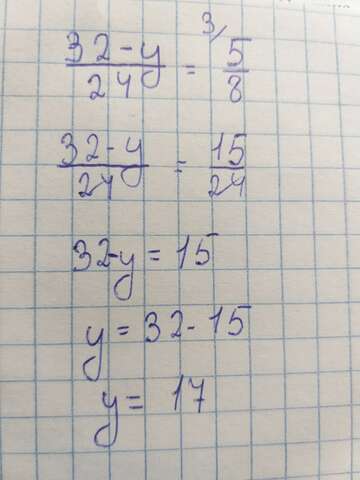 32-y/24 = 3/ 5/8
32-y/24 = 15/24
32-y = 15
y = 32-15
y = 17